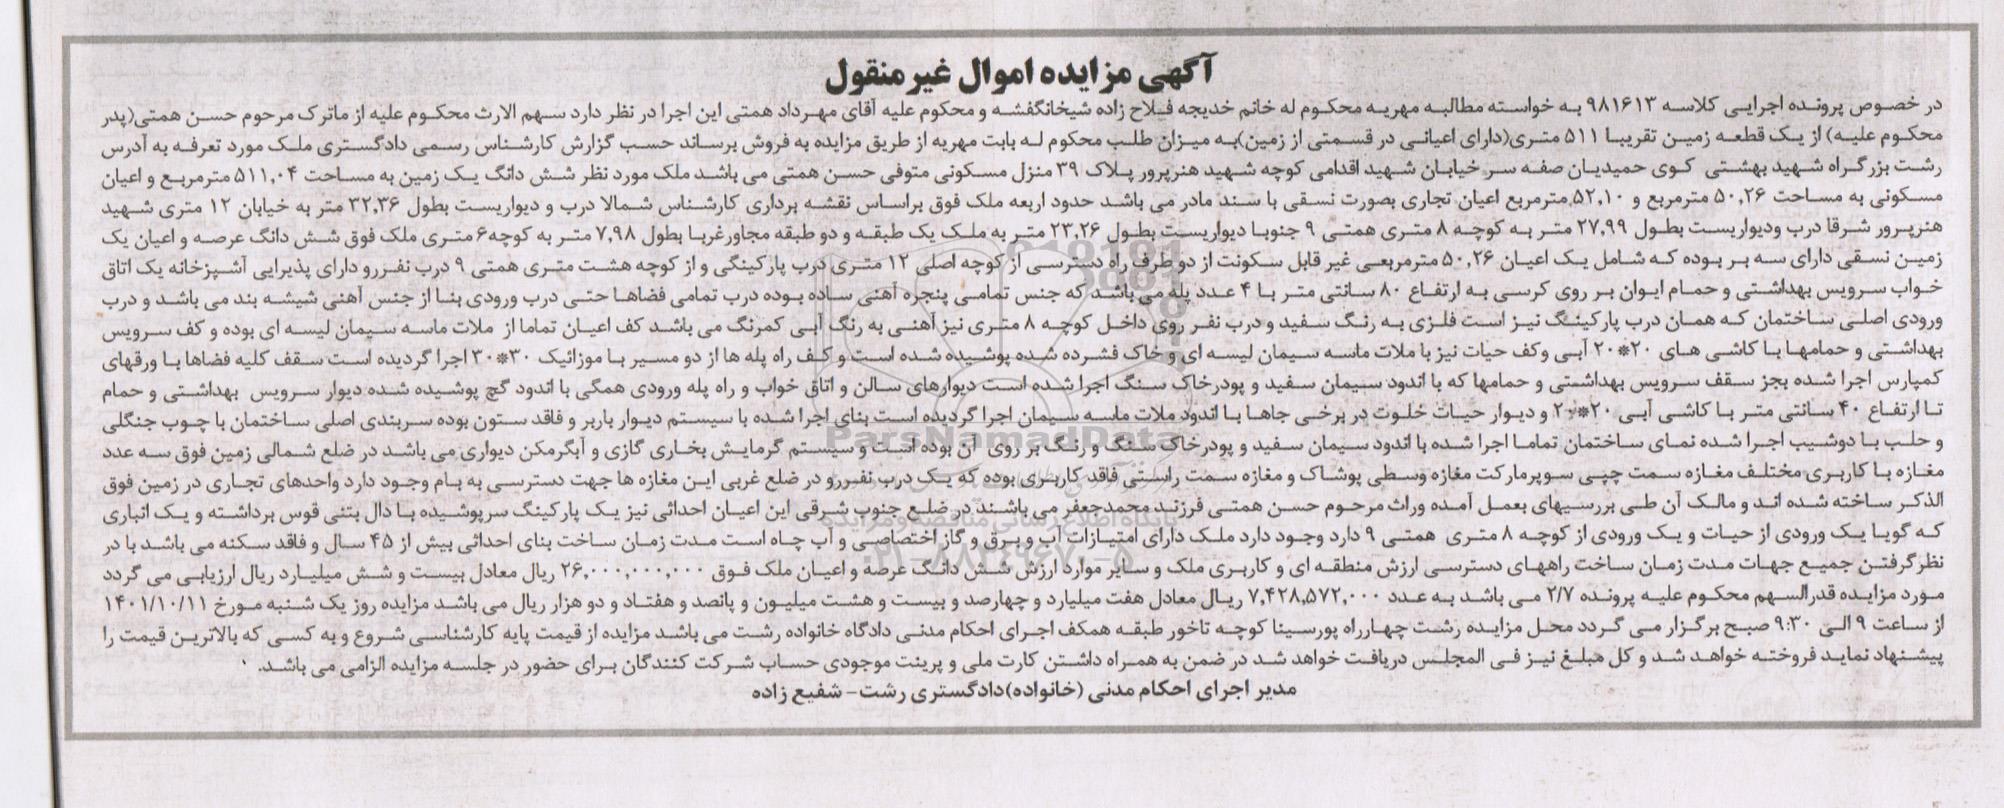 آگهی مزایده اموال غیر منقول
در خصوص پرونده اجرایی کلاسه ۹۸۱۶۱۳ به خواسته مطالبه مهریه محکوم له خانم خدیجه فلاح زاده شیخانگفشه و محکوم علیه آقای مهرداد همتی این اجرا در نظر دارد سهم الارث محکوم علیه از ماترک مرحوم حسن همتی(پدر
محکوم علیه) از یک قطعه زمین تقریبا ۵۱۱ متری(دارای اعیانی در قسمتی از زمین)به میزان طلب محکوم له بابت مهریه از طریق مزایده به فروش برساند حسب گزارش کارشناس رسمی دادگستری ملک مورد تعرفه به آدرس
رشت بزرگراه شهید بهشتی کوی حمیدیان صفه سر خیابان شهید اقدامی کوچه شهید هنرپرور پلاک ۳۹ منزل مسکونی متوفی حسن همتی می باشد ملک مورد نظر شش دانگ یک زمین به مساحت ۵۱۱,۰۴ مترمربع و اعیان
مسکونی به مساحت ۵۰,۲۶ مترمربع و ۵۲,۱۰ مترمربع اعیان تجاری بصورت نسقی با سند مادر می باشد حدود اربعه ملک فوق براساس نقشه برداری کارشناس شمالا درب و دیواریست بطول ۳۲,۳۶ متر به خیابان ۱۲ متری شهید
هنرپرور شرقا درب ودیواریست بطول ۲۷,۹۹ متر به کوچه ۸ متری همتی ۹ جنوبا دیواریست بطول ۲۳,۲۶ متر به ملک یک طبقه و دو طبقه مجاورغربا بطول ۷,۹۸ متر به کوچه۶ متری ملک فوق شش دانگ عرصه و اعیان یک
زمین نسقی دارای سه بر بوده که شامل یک اعیان ۵۰,۲۶ مترمربعی غیر قابل سکونت از دو طرف راه دسترسی از کوچه اصلی ۱۲ متری درب پارکینگی و از کوچه هشت متری همتی ۹ درب نفررو دارای پذیرایی آشپزخانه یک اتاق
خواب سرویس بهداشتی و حمام ایوان بر روی کرسی به ارتفاع ۸۰ سانتی متر با ۴ عدد پله می باشد که جنس تمامی پنجره آهنی ساده بوده درب تمامی فضاها حتی درب ورودی بنا از جنس آهنی شیشه بند می باشد و درب
ورودی اصلی ساختمان که همان درب پارکینگ نیز است فلزی به رنگ سفید و درب نفر روی داخل کوچه ۸ متری نیز آهنی به رنگ آبی کمرنگ می باشد کف اعیان تماما از ملات ماسه سیمان لیسه ای بوده و کف سرویس
بهداشتی و حمامها با کاشی های ۲۰*۲۰ آبی وکف حیات نیز با ملات ماسه سیمان لیسه ای و خاک فشرده شده پوشیده شده است و کف راه پله ها از دو مسیر با موزائیک ۳۰*۳۰ اجرا گردیده است سقف کلیه فضاها با ورقهای
کمپارس اجرا شده بجز سقف سرویس بهداشتی و حمامها که با اندود سیمان سفید و پودرخاک سنگ اجرا شده است دیوارهای سالن و اتاق خواب و راه پله ورودی همگی با اندود گچ پوشیده شده دیوار سرویس بهداشتی و حمام
تا ارتفاع ۴۰ سانتی متر با کاشی آبی ۲۰*۲۰ و دیوار حیات خلوت در برخی جاها با اندود ملات ماسه سیمان اجرا گردیده است بنای اجرا شده با سیستم دیوار باربر و فاقد ستون بوده سربندی اصلی ساختمان با چوب جنگلی
و حلب با دوشیب اجرا شده نمای ساختمان تماما اجرا شده با اندود سیمان سفید و پودرخاک سنگ و رنگ بر روی آن بوده است و سیستم گرمایش بخاری گازی و آبگرمکن دیواری می باشد در ضلع شمالی زمین فوق سه عدد
مغازه با کاربری مختلف مغازه سمت چپی سوپرمارکت مغازه وسطی پوشاک و مغازه سمت راستی فاقد کاربری بوده که یک درب نفررو در ضلع غربی این مغازه ها جهت دسترسی به بام وجود دارد واحدهای تجاری در زمین فوق
الذکر ساخته شده اند و مالک آن طی بررسیهای بعمل آمده وراث مرحوم حسن همتی فرزند محمدجعفر می باشند در ضلع جنوب شرقی این اعیان احداثی نیز یک پارکینگ سرپوشیده با دال بتنی قوس برداشته و یک انباری
که گویا یک ورودی از حیات و یک ورودی از کوچه ۸ متری همتی ۹ دارد وجود دارد ملک دارای امتیازات آب و برق و گاز اختصاصی و آب چاه است مدت زمان ساخت بنای احداثی بیش از ۴۵ سال و فاقد سکنه می باشد با در
نظرگرفتن جمیع جهات مدت زمان ساخت راههای دسترسی ارزش منطقه ای و کاربری ملک و سایر موارد ارزش شش دانگ عرصه و اعیان ملک فوق ۲۶,۰۰۰,۰۰۰,۰۰۰ ریال معادل بیست و شش میلیارد ریال ارزیابی می گردد
مورد مزایده قدرالسهم محکوم علیه پرونده ۲/۷ می باشد به عدد ۷,۴۲۸,۵۷۲,۰۰۰ ریال معادل هفت میلیارد و چهارصد و بیست و هشت میلیون و پانصد و هفتاد و دو هزار ریال می باشد مزایده روز یک شنبه مورخ ۱۴۰۱/۱۰/۱۱
از ساعت ۹ الی ۹:۳۰ صبح برگزار می گردد محل مزایده رشت چهارراه پورسینا کوچه تاخور طبقه همکف اجرای احکام مدنی دادگاه خانواده رشت می باشد مزایده از قیمت پایه کارشناسی شروع و به کسی که بالاترین قیمت را
پیشنهاد نماید فروخته خواهد شد و کل مبلغ نیز فی المجلس دریافت خواهد شد در ضمن به همراه داشتن کارت ملی و پرینت موجودی حساب شرکت کنندگان برای حضور در جلسه مزایده الزامی می باشد.
مدیر اجرای احکام مدنی (خانواده)دادگستری رشت- شفیع زاده
ParsNamadData
پایگاه اطلاع رسانی مناقصه و مزایده
۰۲۱-۸۸۳۴۹۶۷۰-۵